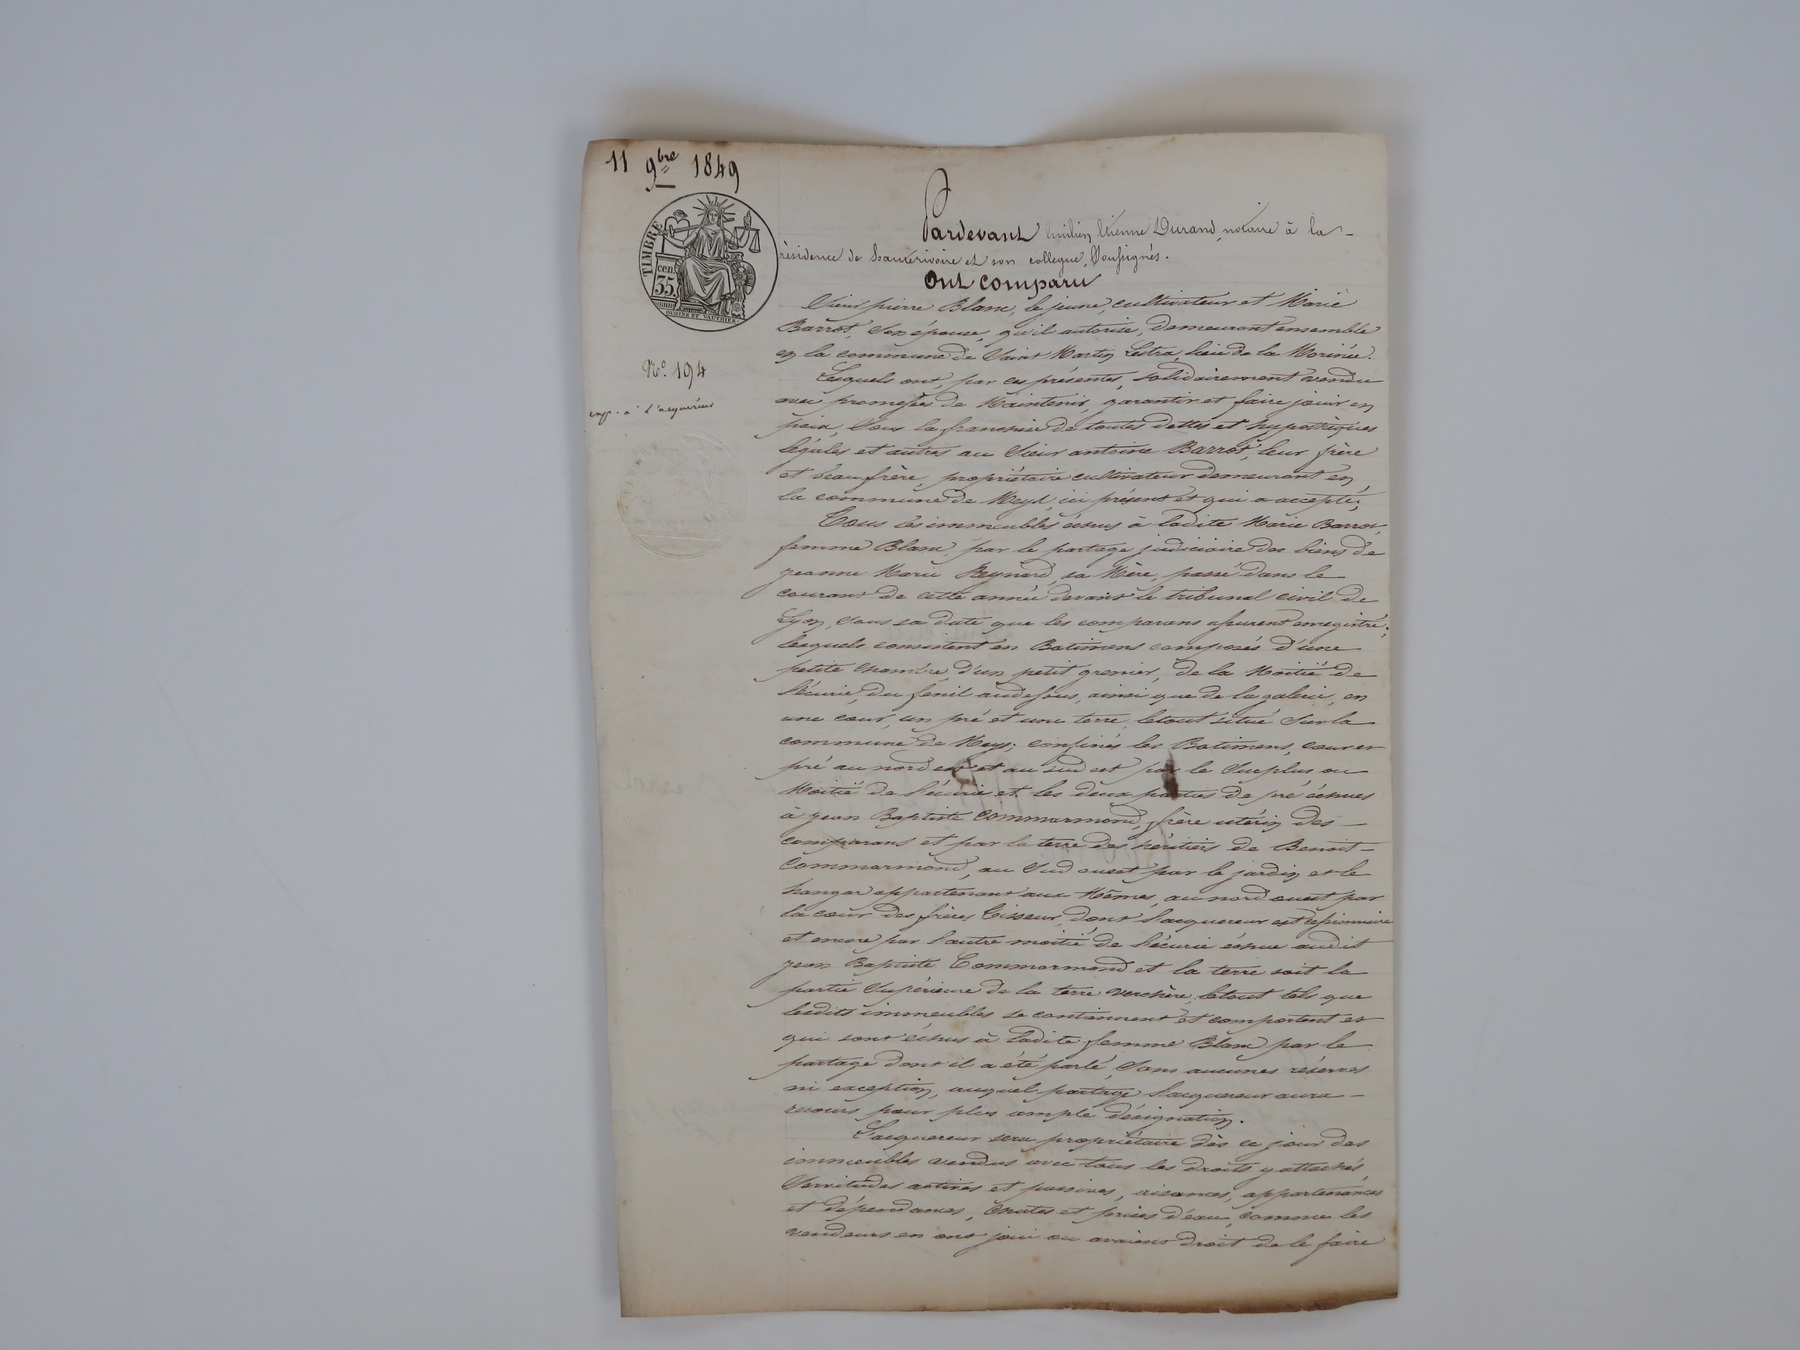 11 9bre 1849
TIMBRE
cen. 35.
OUDINÉ ET VAUTHIER
N.o 194
exp. à l'acquéreur
Pardevant Emilien Etienne Durand, notaire à la
résidence de Hauterivoire et son collegue, Soussignés.
Ont comparu
Sieur pierre Blanc, le jeune, cultivateur et Marie
Barrot, son épouse, qu'il autorise, demeurant ensemble
en la commune de Saint Martin Lestra, lieu de la
Lesquels ont, par ces présentes, solidairement vendu
avec promesse de Maintenir, garantir et faire jouir en
paix, sous la franchise de toutes dettes et hypothèques
légales et autres au Sieur antoine Barrot, leur frère
et beaufrère, propriétaire cultivateur demeurant en
la commune de Meys, ici présent et qui a accepté;
Tous les immeubles échus à ladite Marie Barrot
femme Blanc, par le partage judiciaire des biens de
jeanne Marie Reynard, sa Mère, passé dans le
courant de cette année devant le tribunal civil de
Lyon, sous sa date que les comparans assurent enregistré;
lesquels consistent en Batimens composés d'une
petite chambre, d'un petit grenier, de la Moitié de
l'écurie, du fenil audessus, ainsi que de la galerie, en
une cour, un pré et une terre, letout situé sur la
commune de Meys; confinés les Batimens, cour et
pré au nord est et au sud est par le Surplus ou
Moitié de l'écurie et les deux parties de pré échues
à jean Baptiste Commarmond, frère utérin des
comparans et par la terre des héritiers de Benoit
Commarmond, au Sud ouest par le jardin et le
hangar appartenant aux Mêmes, au nord ouest par
la cour des frères Tisseur, dont l'acquereur est cessionnaire
et encore par l'autre moitié de l'écurie échue audit
jean Baptiste Commarmond et la terre soit la
partie Supérieure de la terre verchère, letout tels que
lesdits immeubles se contiennent et comportent et
qui sont échus à ladite femme Blanc par le
partage dont il a été parlé, Sans aucunes réserves
ni exception, auquel partage l'acquereur aura
recours pour plus ample désignation.
L'acquereur sera propriétaire dès ce jour des
immeubles vendus avec tous les droits y attachés
Servitudes actives et passives, aisances, appartenances
et dépendances, chutes et prises d'eau, comme les
vendeurs en ont joui ou avaient droit de le faire